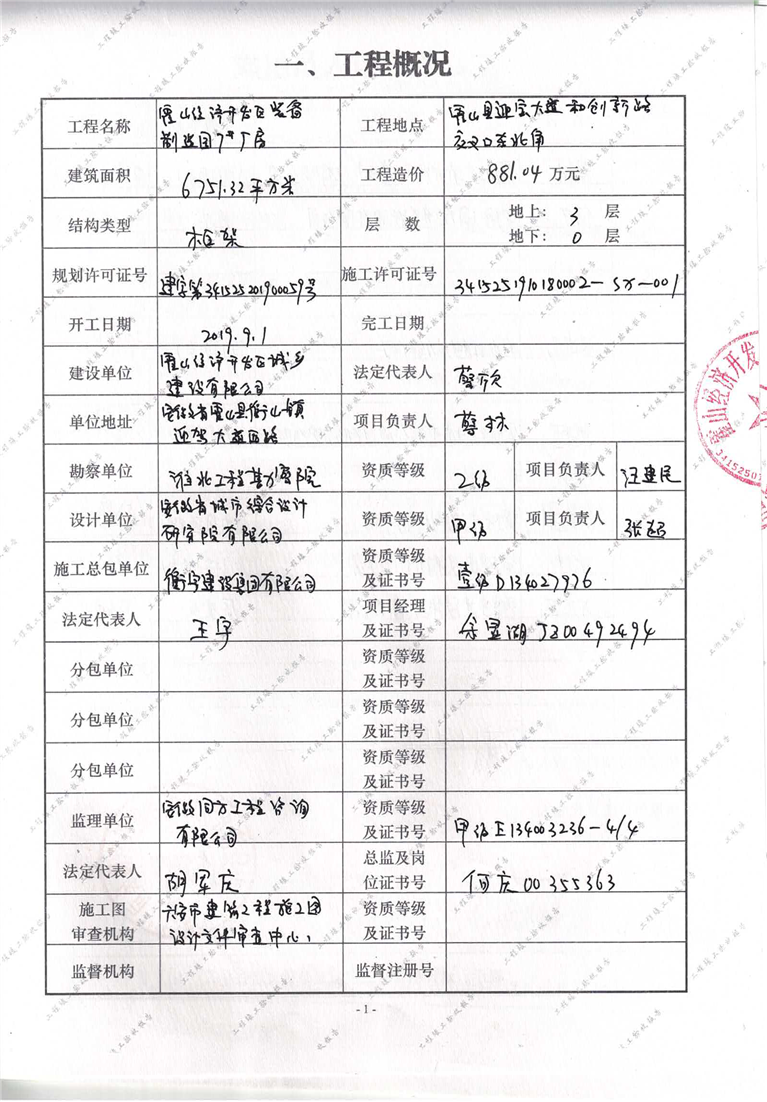 一、工程概况
工程名称 霍山经济开发区装备制造园7#厂房 工程地点 霍山县迎宾大道和创新路交叉口东北角
建筑面积 6751.32平方米 工程造价 881.04 万元
结构类型 框架 层 数 地上: 3 层
地下: 0 层
规划许可证号 建字第341525201900059号 施工许可证号 3415251910180002-SX-001
开工日期 2019.9.1 完工日期
建设单位 霍山经济开发区城乡建设有限公司 法定代表人 蔡欣
单位地址 安徽省霍山县衡山镇迎驾大道西路 项目负责人 蔡林
勘察单位 淮北工程勘察院 资质等级 乙级 项目负责人 汪建民
设计单位 安徽省城市综合设计研究院有限公司 资质等级 甲级 项目负责人 张超
施工总包单位 衡宇建设集团有限公司 资质等级及证书号 壹级D134027976
法定代表人 王宇 项目经理及证书号 余显湖 J300492494
分包单位 资质等级及证书号
分包单位 资质等级及证书号
分包单位 资质等级及证书号
监理单位 安徽同方工程咨询有限公司 资质等级及证书号 甲级E134003236-4/4
法定代表人 胡军庆 总监及岗位证书号 何庆 00355363
施工图审查机构 六安市建筑工程施工图设计文件审查中心 资质等级及证书号
监督机构 监督注册号
- 1 -
工程竣工验收报告
霍山经济开发